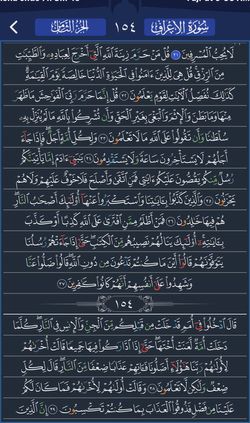 سُورَةُ الأَعْرَافِ ١٥٤ الجُزْءُ الثَّامِنُ
لَا يُحِبُّ ٱلْمُسْرِفِينَ ٣١ قُلْ مَنْ حَرَّمَ زِينَةَ ٱللَّهِ ٱلَّتِىٓ أَخْرَجَ لِعِبَادِهِۦ وَٱلطَّيِّبَـٰتِ
مِنَ ٱلرِّزْقِ قُلْ هِىَ لِلَّذِينَ ءَامَنُوا۟ فِى ٱلْحَيَوٰةِ ٱلدُّنْيَا خَالِصَةً يَوْمَ ٱلْقِيَـٰمَةِ
كَذَٰلِكَ نُفَصِّلُ ٱلْـَٔايَـٰتِ لِقَوْمٍ يَعْلَمُونَ ٣٢ قُلْ إِنَّمَا حَرَّمَ رَبِّىَ ٱلْفَوَٰحِشَ مَا ظَهَرَ
مِنْهَا وَمَا بَطَنَ وَٱلْإِثْمَ وَٱلْبَغْىَ بِغَيْرِ ٱلْحَقِّ وَأَن تُشْرِكُوا۟ بِٱللَّهِ مَا لَمْ يُنَزِّلْ بِهِۦ
سُلْطَـٰنًا وَأَن تَقُولُوا۟ عَلَى ٱللَّهِ مَا لَا تَعْلَمُونَ ٣٣ وَلِكُلِّ أُمَّةٍ أَجَلٌ فَإِذَا جَآءَ
أَجَلُهُمْ لَا يَسْتَأْخِرُونَ سَاعَةً وَلَا يَسْتَقْدِمُونَ ٣٤ يَـٰبَنِىٓ ءَادَمَ إِمَّا يَأْتِيَنَّكُمْ
رُسُلٌ مِّنكُمْ يَقُصُّونَ عَلَيْكُمْ ءَايَـٰتِى فَمَنِ ٱتَّقَىٰ وَأَصْلَحَ فَلَا خَوْفٌ عَلَيْهِمْ وَلَا هُمْ
يَحْزَنُونَ ٣٥ وَٱلَّذِينَ كَذَّبُوا۟ بِـَٔايَـٰتِنَا وَٱسْتَكْبَرُوا۟ عَنْهَآ أُو۟لَـٰٓئِكَ أَصْحَـٰبُ ٱلنَّارِ
هُمْ فِيهَا خَـٰلِدُونَ ٣٦ فَمَنْ أَظْلَمُ مِمَّنِ ٱفْتَرَىٰ عَلَى ٱللَّهِ كَذِبًا أَوْ كَذَّبَ
بِـَٔايَـٰتِهِۦٓ أُو۟لَـٰٓئِكَ يَنَالُهُمْ نَصِيبُهُم مِّنَ ٱلْكِتَـٰبِ حَتَّىٰٓ إِذَا جَآءَتْهُمْ رُسُلُنَا
يَتَوَفَّوْنَهُمْ قَالُوٓا۟ أَيْنَ مَا كُنتُمْ تَدْعُونَ مِن دُونِ ٱللَّهِ قَالُوا۟ ضَلُّوا۟ عَنَّا
وَشَهِدُوا۟ عَلَىٰٓ أَنفُسِهِمْ أَنَّهُمْ كَانُوا۟ كَـٰفِرِينَ ٣٧
١٥٤
قَالَ ٱدْخُلُوا۟ فِىٓ أُمَمٍ قَدْ خَلَتْ مِن قَبْلِكُم مِّنَ ٱلْجِنِّ وَٱلْإِنسِ فِى ٱلنَّارِ كُلَّمَا
دَخَلَتْ أُمَّةٌ لَّعَنَتْ أُخْتَهَا حَتَّىٰٓ إِذَا ٱدَّارَكُوا۟ فِيهَا جَمِيعًا قَالَتْ أُخْرَىٰهُمْ
لِأُولَىٰهُمْ رَبَّنَا هَـٰٓؤُلَآءِ أَضَلُّونَا فَـَٔاتِهِمْ عَذَابًا ضِعْفًا مِّنَ ٱلنَّارِ قَالَ لِكُلٍّ
ضِعْفٌ وَلَـٰكِن لَّا تَعْلَمُونَ ٣٨ وَقَالَتْ أُولَىٰهُمْ لِأُخْرَىٰهُمْ فَمَا كَانَ لَكُمْ
عَلَيْنَا مِن فَضْلٍ فَذُوقُوا۟ ٱلْعَذَابَ بِمَا كُنتُمْ تَكْسِبُونَ ٣٩ إِنَّ ٱلَّذِينَ